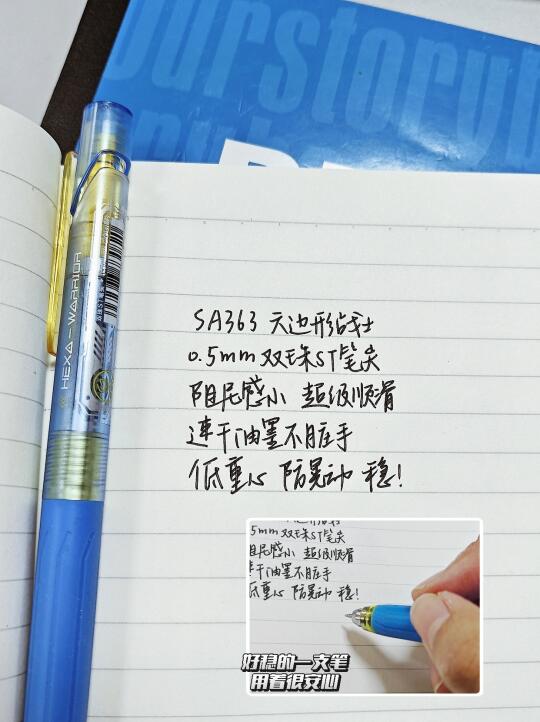 ourstoryb
HEXA-WARRIOR
SA363 六边形战士
0.5mm 双珠ST笔尖
阻尼感小 超级顺滑
速干油墨不脏手
低重心 防晃动 稳!
5mm 双珠ST笔尖
阻尼感小 超级顺滑
速干油墨不脏手
低重心 防晃动 稳!
好稳的一支笔
用着很安心